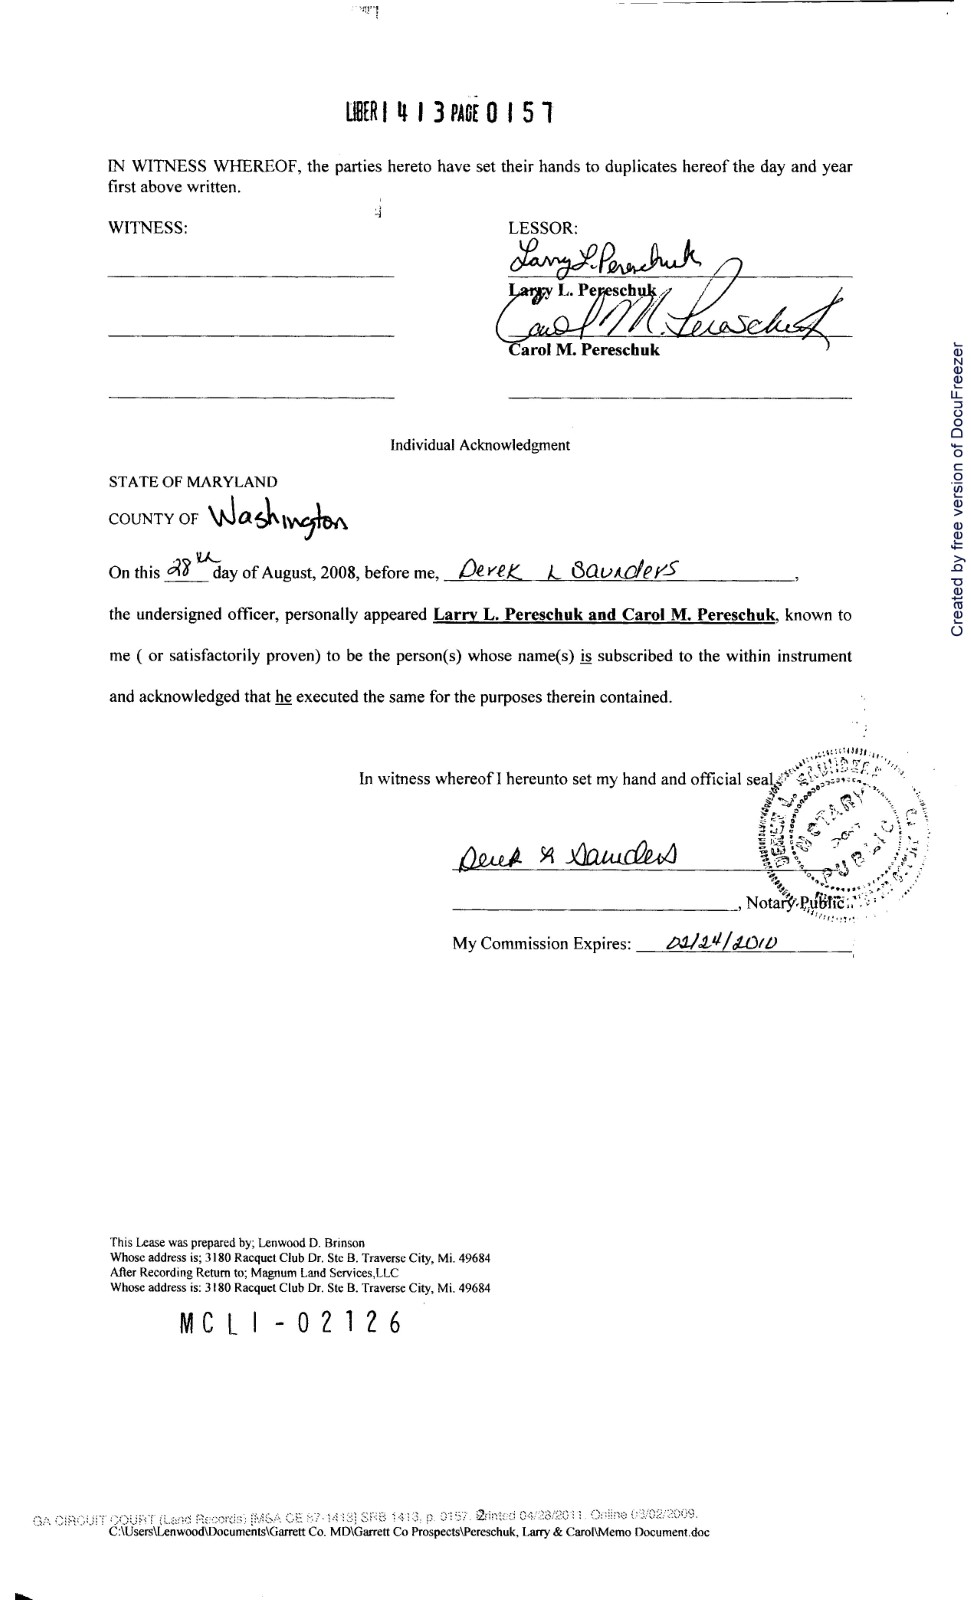 LIBER 1413 PAGE 0157
IN WITNESS WHEREOF, the parties hereto have set their hands to duplicates hereof the day and year
first above written.
WITNESS:
LESSOR:
Larry L. Pereschuk
Larry L. Pereschuk
Carol M. Pereschuk
Carol M. Pereschuk
Individual Acknowledgment
STATE OF MARYLAND
COUNTY OF Washington
On this 28th day of August, 2008, before me, Derek L Saunders,
the undersigned officer, personally appeared Larry L. Pereschuk and Carol M. Pereschuk, known to
me ( or satisfactorily proven) to be the person(s) whose name(s) is subscribed to the within instrument
and acknowledged that he executed the same for the purposes therein contained.
In witness whereof I hereunto set my hand and official seal.
DEREK L. SAUNDERS
NOTARY
PUBLIC
Derek L Saunders
, Notary Public
My Commission Expires: 02/24/2010
This Lease was prepared by; Lenwood D. Brinson
Whose address is; 3180 Racquet Club Dr. Ste B. Traverse City, Mi. 49684
After Recording Return to; Magnum Land Services,LLC
Whose address is: 3180 Racquet Club Dr. Ste B. Traverse City, Mi. 49684
MCLI-02126
GA CIRCUIT COURT (Land Records) [MSA CE 67-1413] SRB 1413, p. 0157. Printed 04/28/2011. Online 03/02/2009.
2
C:\Users\Lenwood\Documents\Garrett Co. MD\Garrett Co Prospects\Pereschuk, Larry & Carol\Memo Document.doc
Created by free version of DocuFreezer